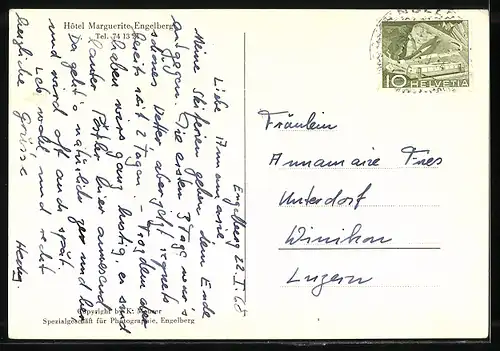 Hôtel Marguerite, Engelberg
Tel. 74 13
Engelberg 22. I. 60
Liebe Annamarie
Meine Skiferien gehen dem Ende
entgegen. Die ersten 3 Tage war's
schönes Wetter aber jetzt regnets
bereits seit 2 Tagen. Trotzdem aber
haben wirs ganz lustig, es sind
lauter hier anwesend
Da geht's natürlich
und wird oft auch spät.
Leb wohl und recht
herzliche Grüsse
Hedy
Copyright by K. Meuser
Spezialgeschäft für Photographie, Engelberg
10 HELVETIA
Fräulein
Annamarie Fres
Unterdorf
Winikon
Luzern